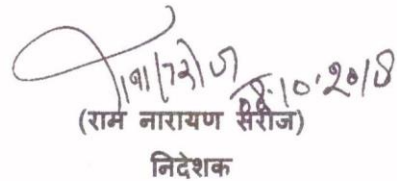 08.10.2018
(राम नारायण सरोज)
निदेशक